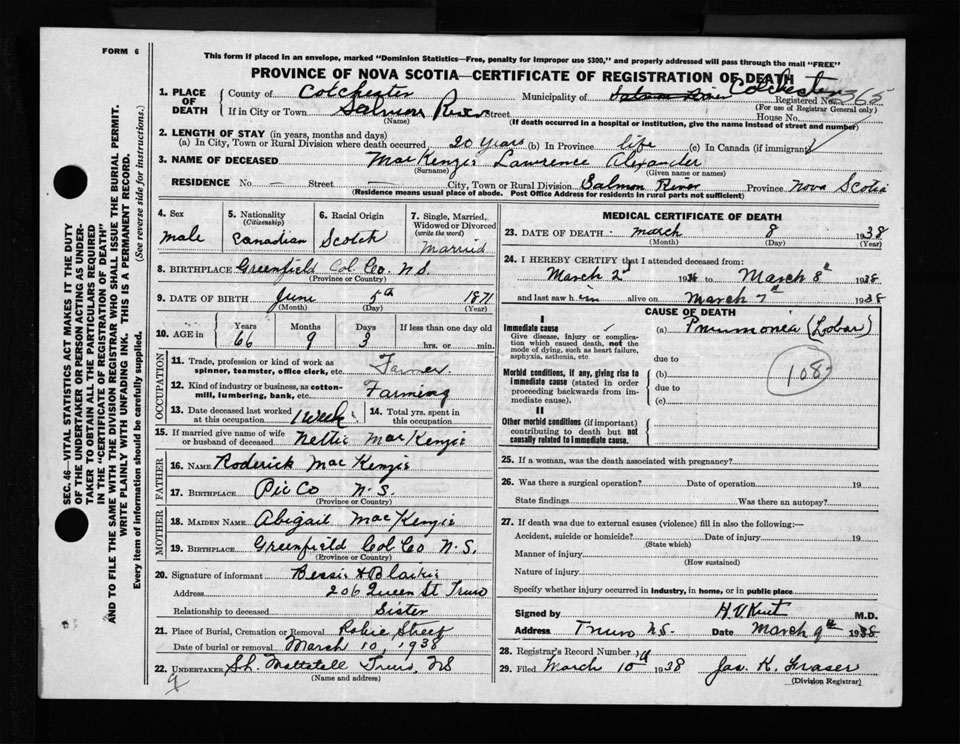 FORM 6
This form if placed in an envelope, marked "Dominion Statistics—Free, penalty for improper use $300," and properly addressed will pass through the mail "FREE"
PROVINCE OF NOVA SCOTIA—CERTIFICATE OF REGISTRATION OF DEATH
1. PLACE OF DEATH County of Colchester Municipality of Colchester
Registered No. 365
(For use of Registrar General only)
If in City or Town Salmon River Street House No.
(Name) (If death occurred in a hospital or institution, give the name instead of street and number)
2. LENGTH OF STAY (in years, months and days)
(a) In City, Town or Rural Division where death occurred 20 years (b) In Province life (c) In Canada (if immigrant)
3. NAME OF DECEASED MacKenzie Lawrence Alexander
(Surname) (Given name or names)
RESIDENCE No. — Street — City, Town or Rural Division Salmon River Province Nova Scotia
(Residence means usual place of abode. Post Office Address for residents in rural parts not sufficient)
4. Sex male
5. Nationality (Citizenship) Canadian
6. Racial Origin Scotch
7. Single, Married, Widowed or Divorced (write the word) Married
8. BIRTHPLACE Greenfield Col. Co. N.S.
(Province or Country)
9. DATE OF BIRTH June 5th 1871
(Month) (Day) (Year)
10. AGE in Years 66 Months 9 Days 3 If less than one day old hrs. or min.
OCCUPATION
11. Trade, profession or kind of work as spinner, teamster, office clerk, etc. Farmer
12. Kind of industry or business, as cotton-mill, lumbering, bank, etc. Farming
13. Date deceased last worked at this occupation 1 week 14. Total yrs. spent in this occupation
15. If married give name of wife or husband of deceased Nettie MacKenzie
FATHER
16. NAME Roderick MacKenzie
17. BIRTHPLACE Pic Co N.S.
(Province or Country)
MOTHER
18. MAIDEN NAME Abigail MacKenzie
19. BIRTHPLACE Greenfield Col Co N.S.
(Province or Country)
20. Signature of informant Bessie H Blaikie
Address 206 Queen St Truro
Relationship to deceased Sister
21. Place of Burial, Cremation or Removal Robie Street
Date of burial or removal March 10, 1938
22. UNDERTAKER Mattatall Truro, NS
(Name and address)
MEDICAL CERTIFICATE OF DEATH
23. DATE OF DEATH March 8 1938
(Month) (Day) (Year)
24. I HEREBY CERTIFY that I attended deceased from:
March 2d 1938 to March 8th 1938
and last saw him alive on March 7th 1938
CAUSE OF DEATH
I
Immediate cause
Give disease, injury or complication which caused death, not the mode of dying, such as heart failure, asphyxia, asthenia, etc
(a) Pneumonia (Lobar)
due to
Morbid conditions, if any, giving rise to immediate cause (stated in order proceeding backwards from immediate cause).
(b)
due to
(c)
108
II
Other morbid conditions (if important) contributing to death but not causally related to immediate cause.
25. If a woman, was the death associated with pregnancy?
26. Was there a surgical operation? Date of operation 19
State findings Was there an autopsy?
27. If death was due to external causes (violence) fill in also the following:—
Accident, suicide or homicide? Date of injury 19
(State which)
Manner of injury
(How sustained)
Nature of injury
Specify whether injury occurred in industry, in home, or in public place
Signed by H.V. Kent M.D.
Address Truro N.S. Date March 9th 1938
28. Registrar's Record Number
29. Filed March 10 1938 Jas. K. Fraser
(Division Registrar)
SEC. 46—VITAL STATISTICS ACT MAKES IT THE DUTY
OF THE UNDERTAKER OR PERSON ACTING AS UNDER-
TAKER TO OBTAIN ALL THE PARTICULARS REQUIRED
IN THE "CERTIFICATE OF REGISTRATION OF DEATH"
AND TO FILE THE SAME WITH THE DIVISION REGISTRAR WHO SHALL ISSUE THE BURIAL PERMIT.
WRITE PLAINLY WITH UNFADING INK. THIS IS A PERMANENT RECORD.
Every item of information should be carefully supplied. (See reverse side for instructions.)